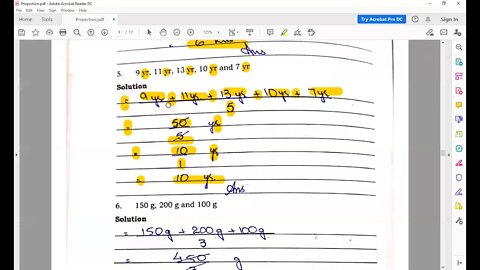 Proportion.pdf - Adobe Acrobat Reader DC
File Edit View Sign Window Help
Home Tools Proportion.pdf Sign In
Try Acrobat Pro DC
= 6 Ans
5. 9 yr, 11 yr, 13 yr, 10 yr and 7 yr
Solution
= 9 ys + 11 ys + 13 ys + 10 ys + 7 ys
5
= 50 ys
5
= 10 ys
1
= 10 ys.
Ans
6. 150 g, 200 g and 100 g
Solution
= 150g + 200g + 100g
3
= 450 g
3